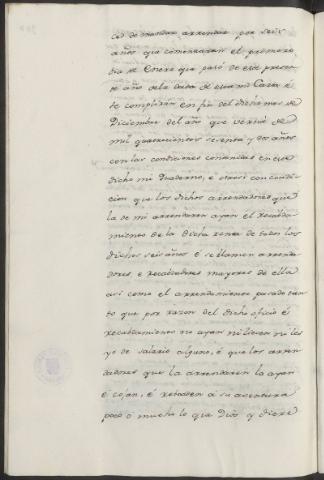 ced de mandar arrendar por seis
años que comenzaron el primero
dia de Enero que pasó de este presen-
te año de la data de esta mi Carta é
se compliran en fin del dicho mes de
Diciembre del año que verná de
mil quatrocientos sesenta y dos años
con las condiciones contenidas en este
dicho mi Quaderno, e otrosi con condi-
cion que los dichos arrendadores que
la de mi arrendaren ayan el recaúda-
miento de la dicha renta de todos los
dichos seis años é se llamen arrenda-
dores, e recaudadores mayores de ella
asi como el arrendamiento pasado tan-
to que por razon del dicho oficio é
recaudamiento no ayan ni lieven ni les
yo de salario alguno, é que los arren-
dadores que la arrendaren la ayan
é cojan, é recauden a su aventura
poco ó mucho lo que Dios y diere